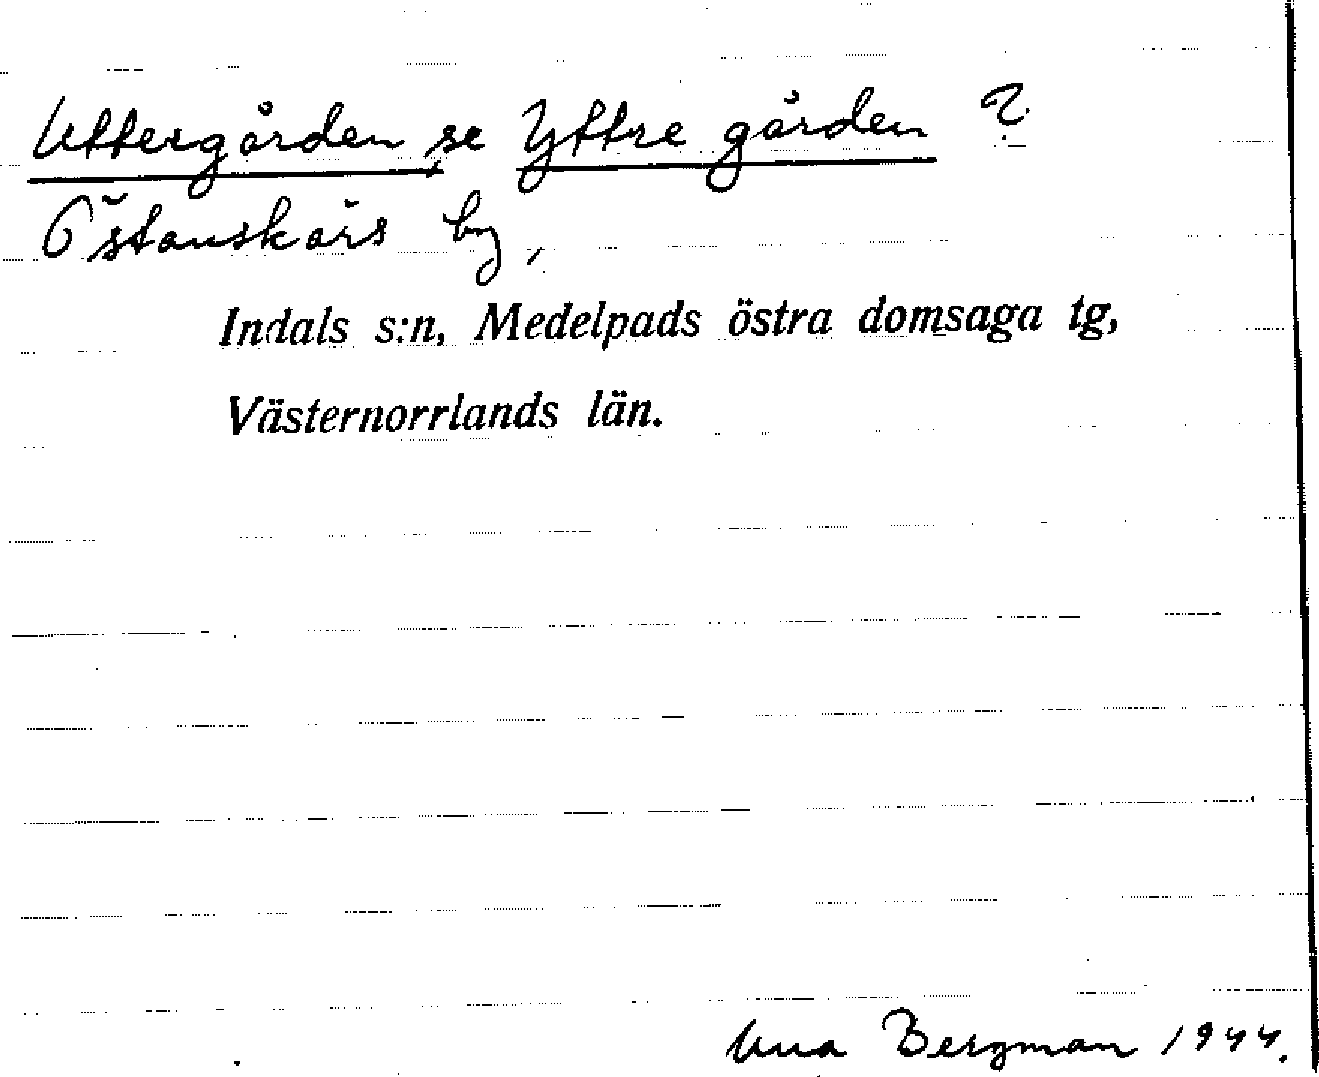 Uttergården, se Yttre gården ?
Östanskärs by,
Indals s:n, Medelpads östra domsaga tg,
Västernorrlands län.
Una Bergman 1944.